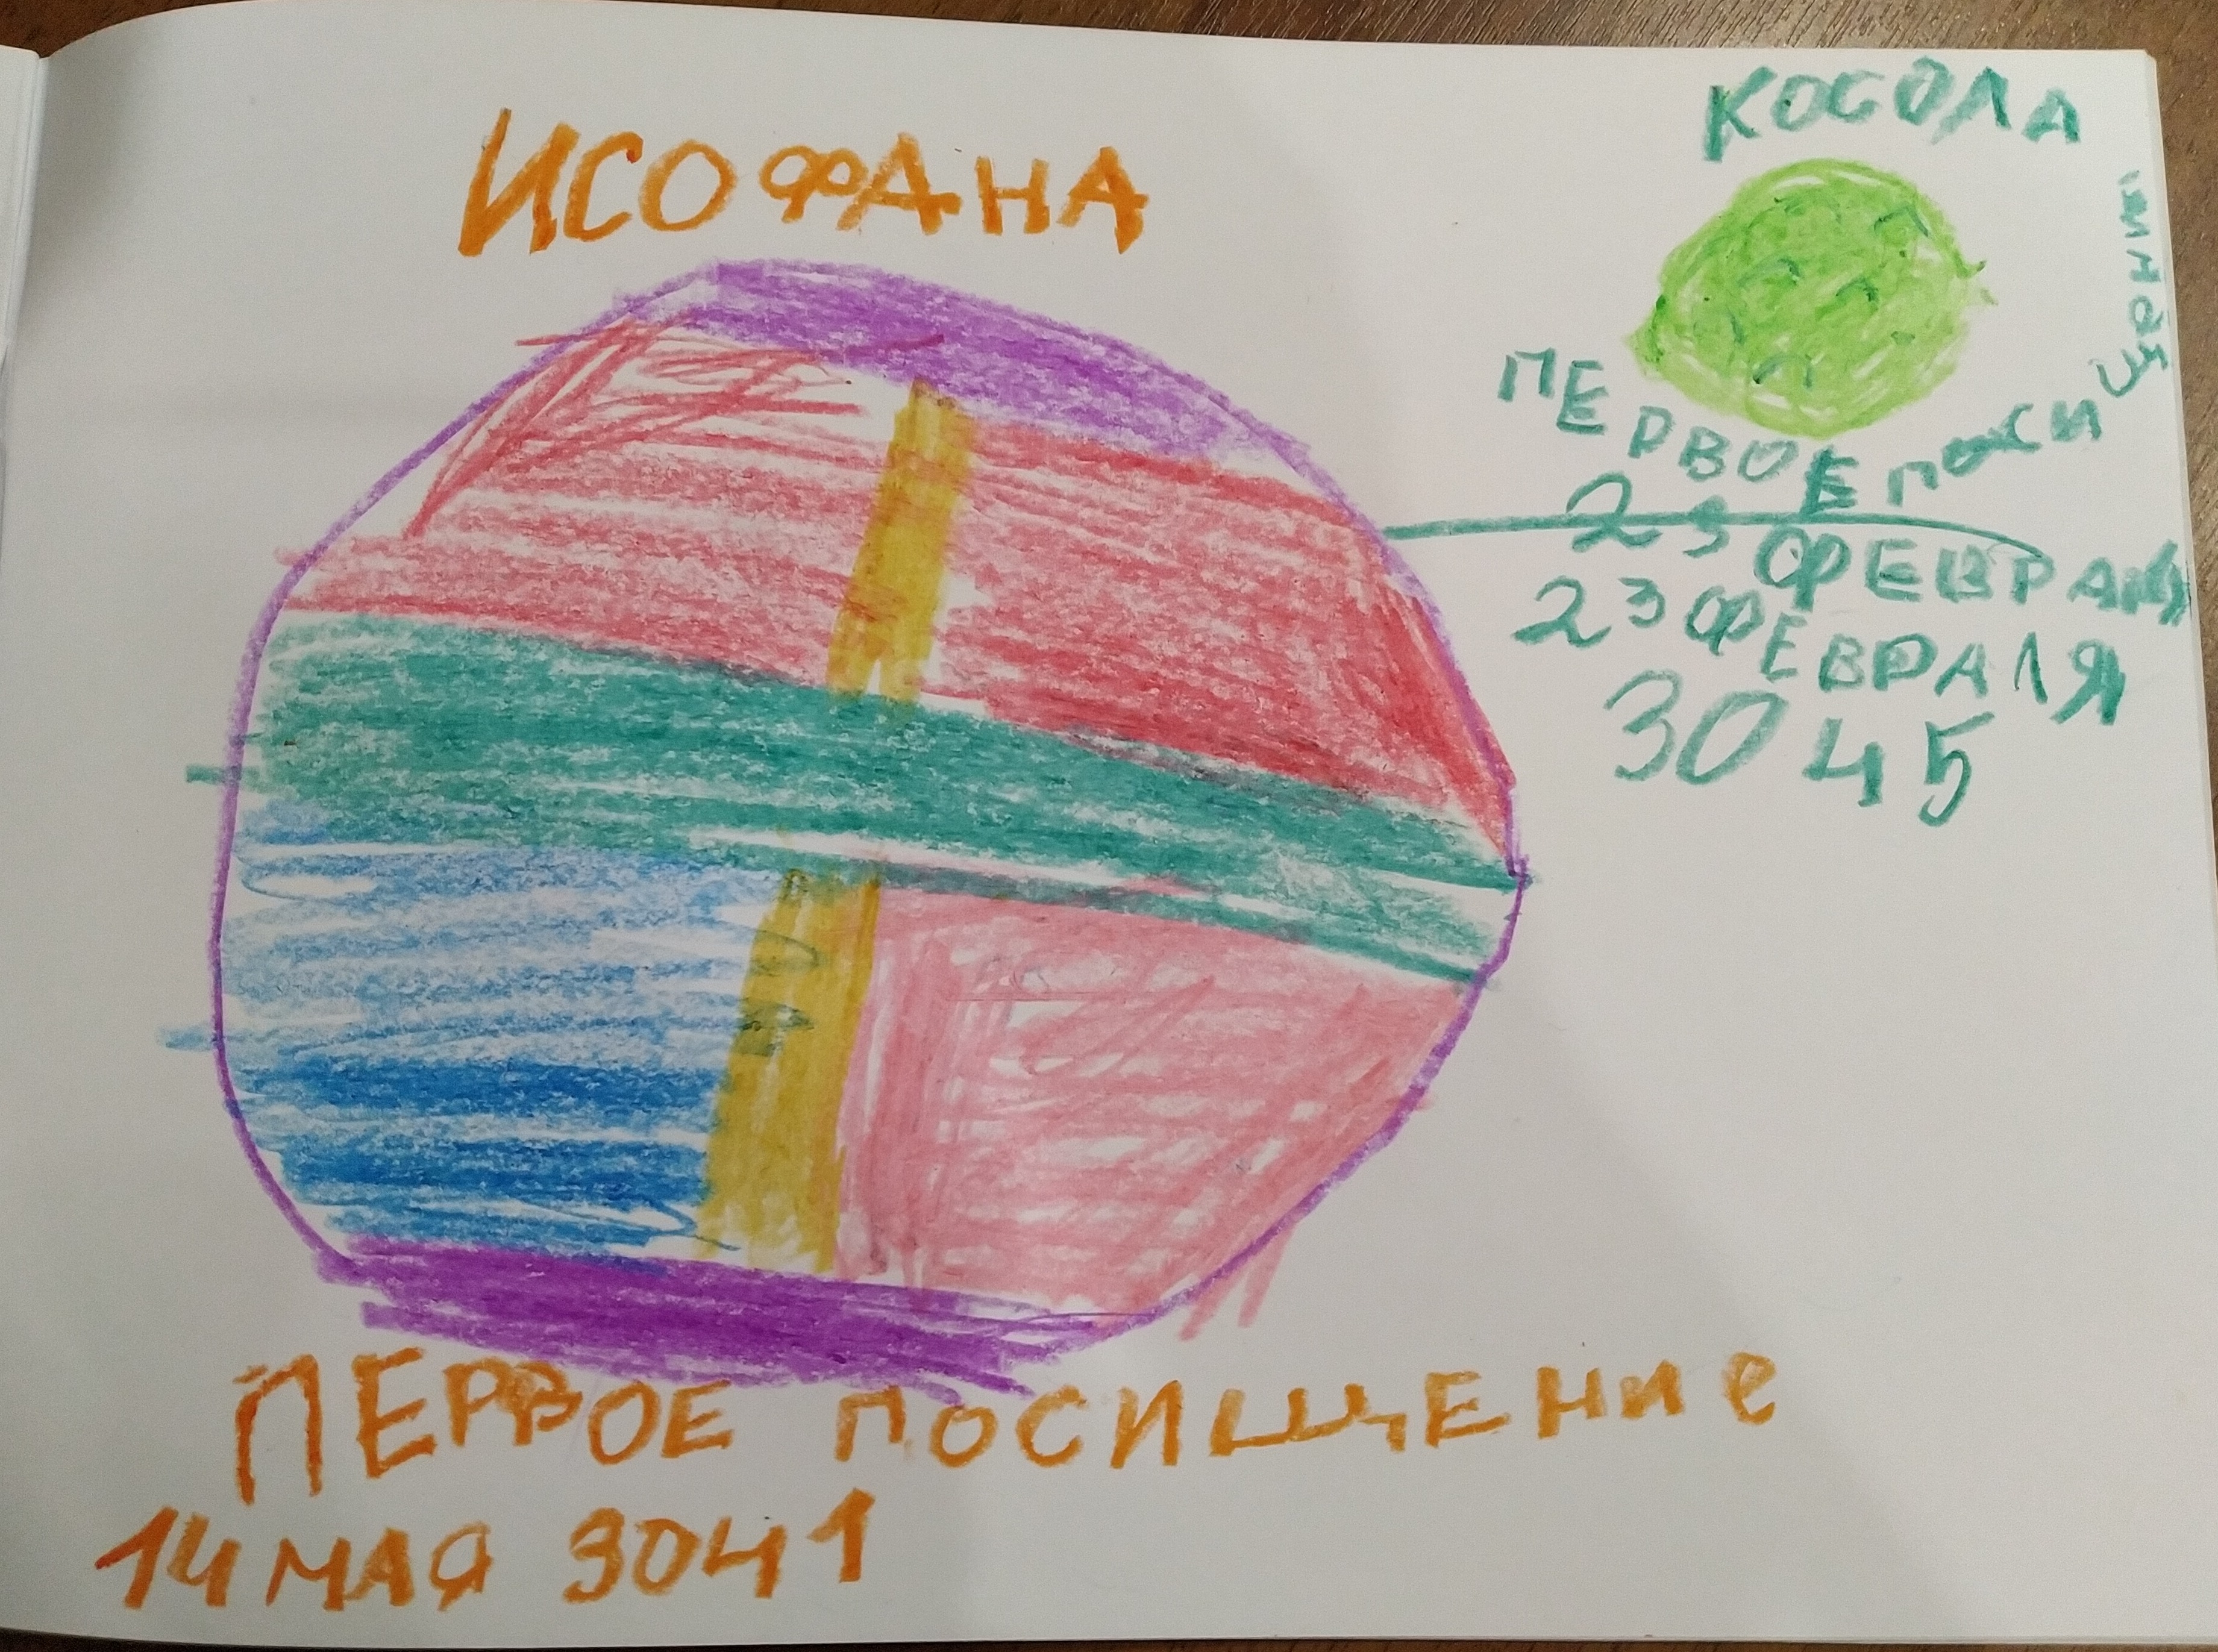 ИСОФАНА
КОСОЛА
ПЕРВОЕ ПОСИЩЕНИЕ
14 МАЯ 3041
ПЕРВОЕ ПОСИ
23 ФЕВРАЛЯ
23 ФЕВРАЛЯ
3045